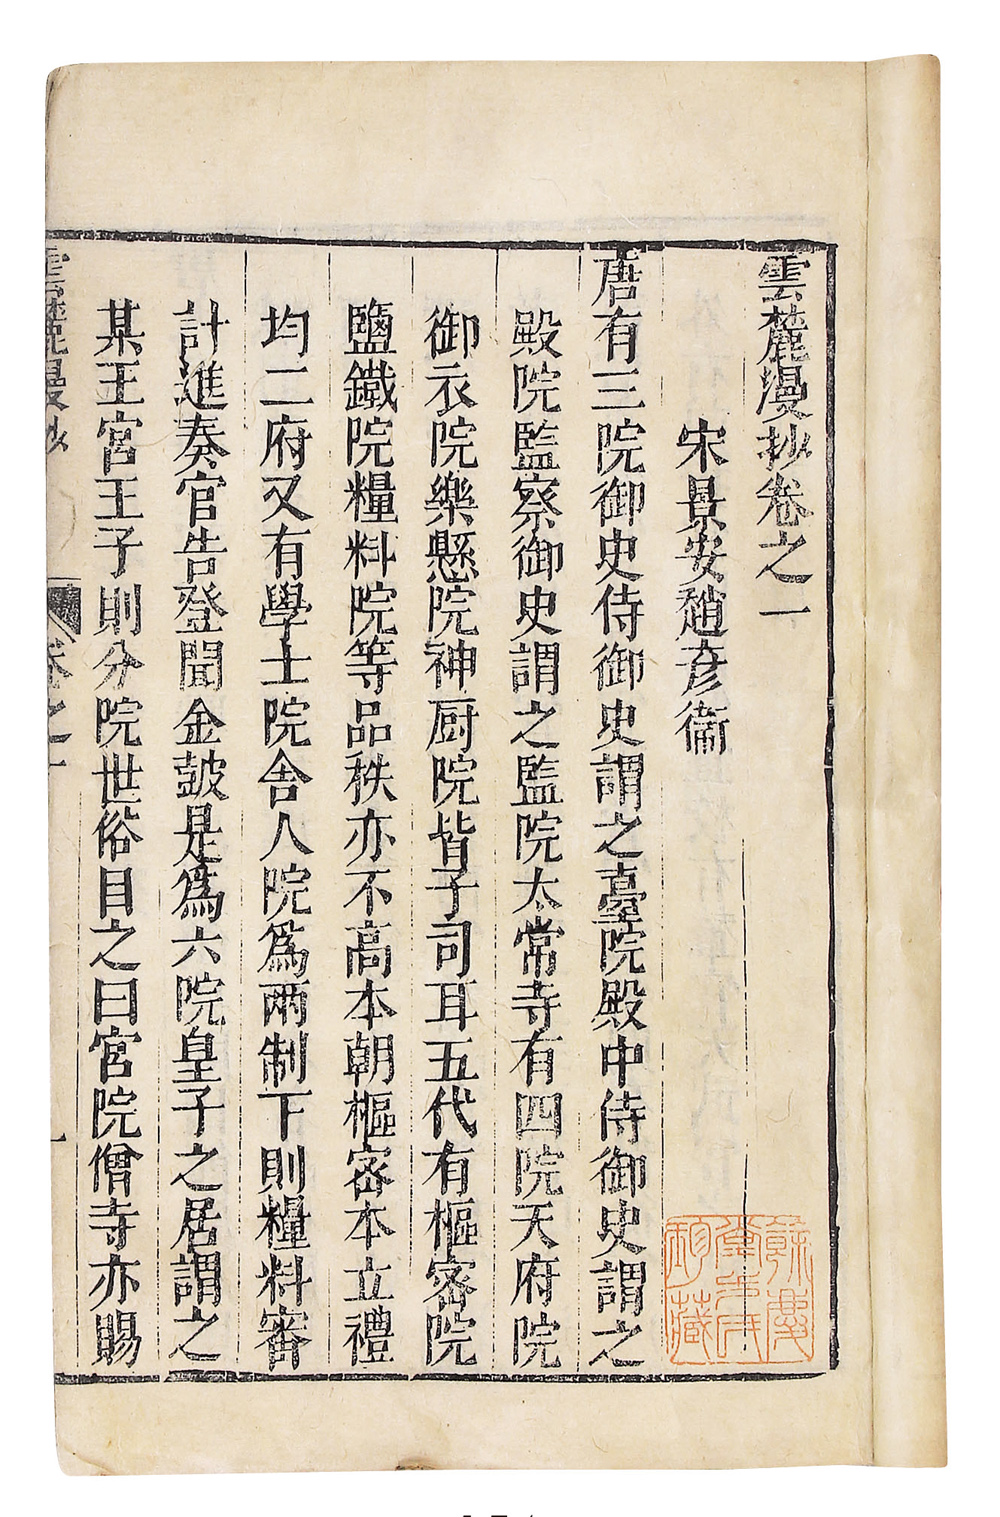 雲麓漫抄卷之一
宋景安趙彦衞
唐有三院御史侍御史謂之臺院殿中侍御史謂之
殿院監察御史謂之監院太常寺有四院天府院
御衣院樂懸院神厨院皆子司耳五代有樞宻院
鹽鐵院糧料院等品秩亦不髙本朝樞宻本立禮
均二府又有學士院舎人院爲兩制下則糧料審
計進奏官告登聞金皷是爲六院皇子之居謂之
某王宮王子則分院世俗目之曰宮院僧寺亦賜
雲麓漫抄
卷之一
一